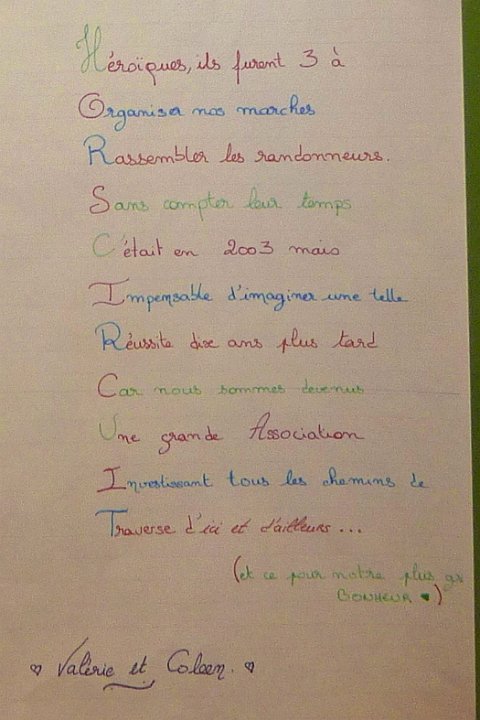 Héroïques, ils furent 3 à
Organiser nos marches
Rassembler les randonneurs.
Sans compter leur temps
C'était en 2003 mais
Impensable d'imaginer une telle
Réussite dix ans plus tard
Car nous sommes devenus
Une grande Association
Investissant tous les chemins de
Traverse d'ici et d'ailleurs...
(et ce pour notre plus
BONHEUR ♥)
♡ Valérie et Coleen. ♡